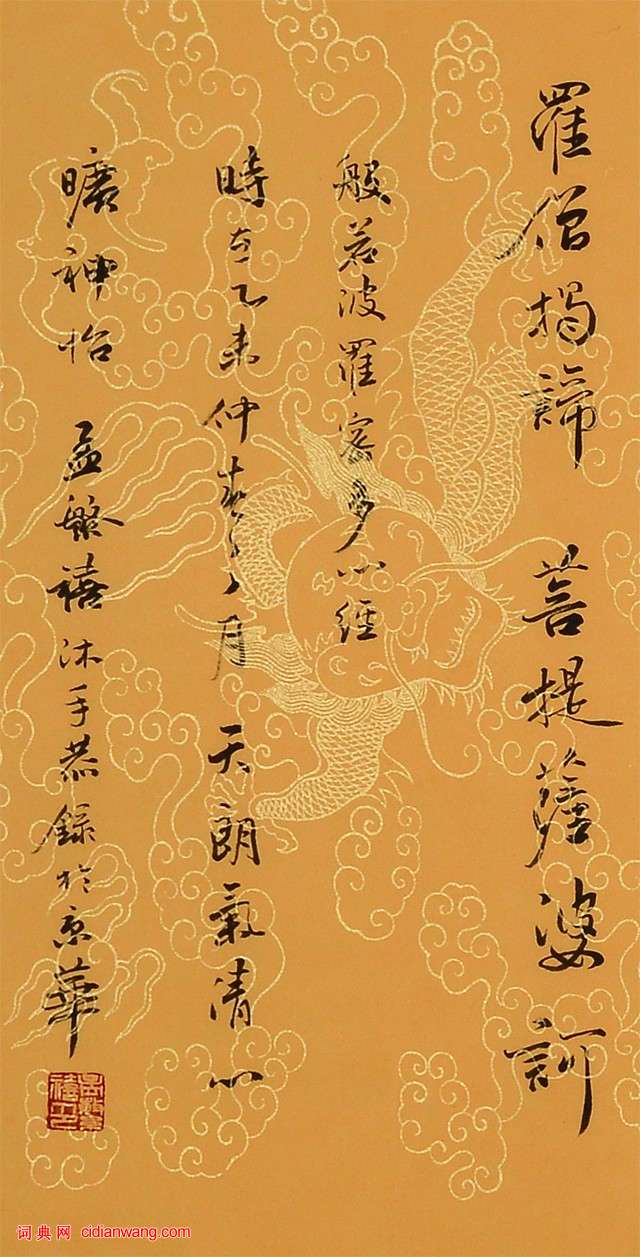 羅僧揭諦 菩提薩婆訶
般若波羅密多心經
時在乙未仲春之月 天朗氣清心
曠神怡 孟繁禧沐手恭錄於京華
词典网 cidianwang.com